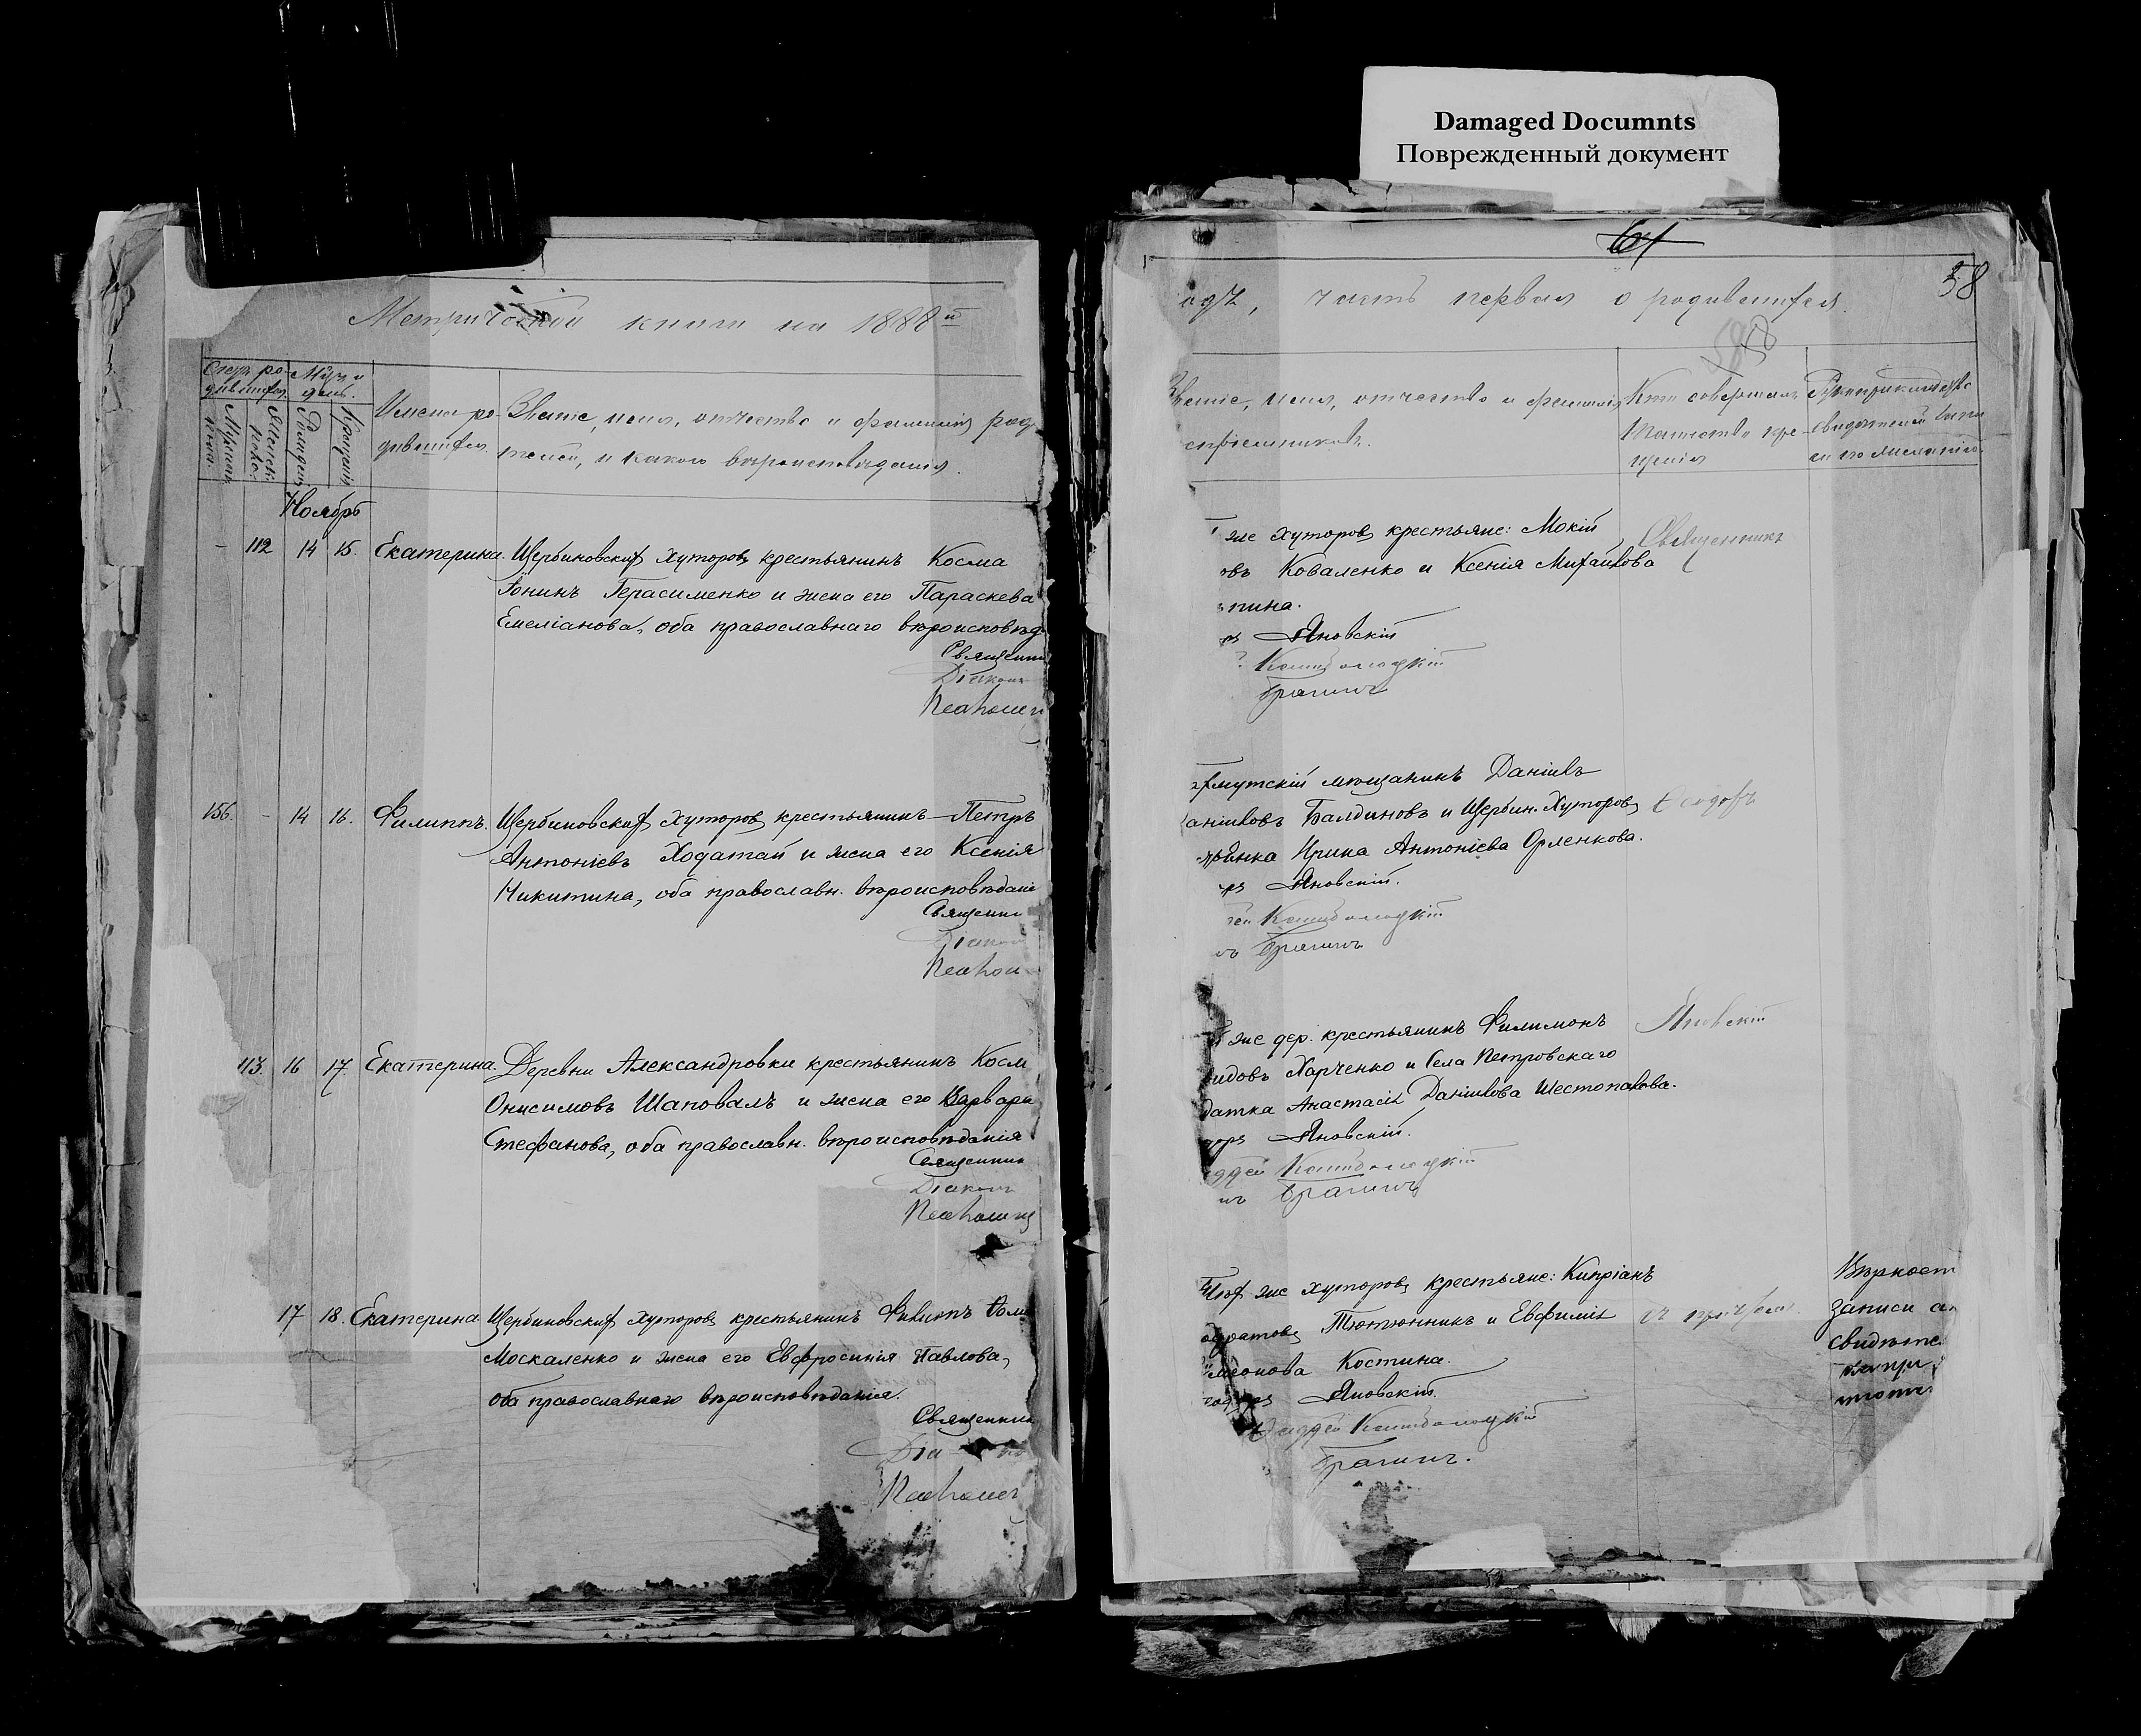 Damaged Documnts
Поврежденный документ
Метрической книги на 1888й
Счетъ ро-
дившихся.
Мѣс. и
день.
Мужска
Женска
Рожденія
Крещенія
Имена ро-
дившихся.
Званіе, имя, отчество и фамилія род
телей, и какого вѣроисповѣданія.
Ноябрь
112 14 15. Екатерина. Щербиновскихъ хуторовъ крестьянинъ Косма
Іонинъ Герасименко и жена его Параскева
Емеліанова, оба православнаго вѣроисповѣд
Священни
Діаконъ
Псаломщ
156. - 14 16. Филиппъ. Щербиновскихъ хуторовъ крестьянинъ Петръ
Антоніевъ Ходатай и жена его Ксенія
Никитина, оба православн. вѣроисповѣданія
Священни
Діакон
Псалом
113. 16 17 Екатерина. Деревни Александровки крестьянинъ Косм
Онисимовъ Шаповалъ и жена его Варвара
Стефанова, оба православн. вѣроисповѣданія
Священни
Діаконъ
Псаломщ
17 18. Екатерина Щербиновскихъ хуторовъ крестьянинъ Филиппъ
Москаленко и жена его Евфросинія Павлова,
оба православнаго вѣроисповѣданія.
Священни
Діа
Псаломщ
61
58
одъ, часть первая о родившихся.
Званіе, имя, отчество и фамилія
воспріемниковъ.
Кто совершалъ
таинство кре-
щенія
Рукоприкладство
свидѣтелей запи
си по желанію.
же хуторовъ крестьяне: Мокій
овъ Коваленко и Ксенія Михаилова
пина.
Яновскій
Брагинъ
Священникъ
хмутскій мѣщанинъ Даніилъ
аніиловъ Балдиновъ и Щербин. хуторовъ
Ирина Антоніева Орленкова.
Яновскій.
Брагинъ
же дер. крестьянинъ Филимонъ
идовъ Харченко и села Петровскаго
датка Анастасія Даніилова Шестопалова.
Яновскій.
Брагинъ
Яновскій
же хуторовъ крестьяне: Кипріанъ
Тютюнникъ и Евфимія
Костина.
Яновскій.
Брагинъ.
съ причтомъ.
Вѣрност
записи
свидѣте